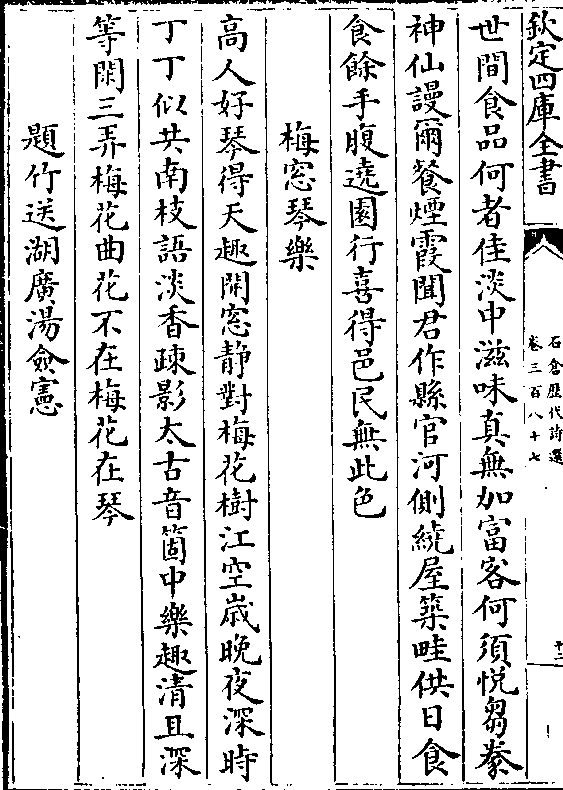 欽定四庫全書
石倉歷代詩選
卷三百八十七
十二
世間食品何者佳淡中滋味真無加富客何須悦芻豢
神仙謾爾餐煙霞聞君作縣官河側繞屋築畦供日食
食餘手腹遶園行喜得邑民無此色
梅窓琴樂
高人好琴得天趣開窓静對梅花樹江空歲晚夜深時
丁丁似共南枝語淡香疎影太古音箇中樂趣清且深
等閑三弄梅花曲花不在梅花在琴
題竹送湖廣湯僉憲